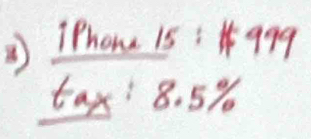 3) iPhone 15 : $999
tax : 8.5%